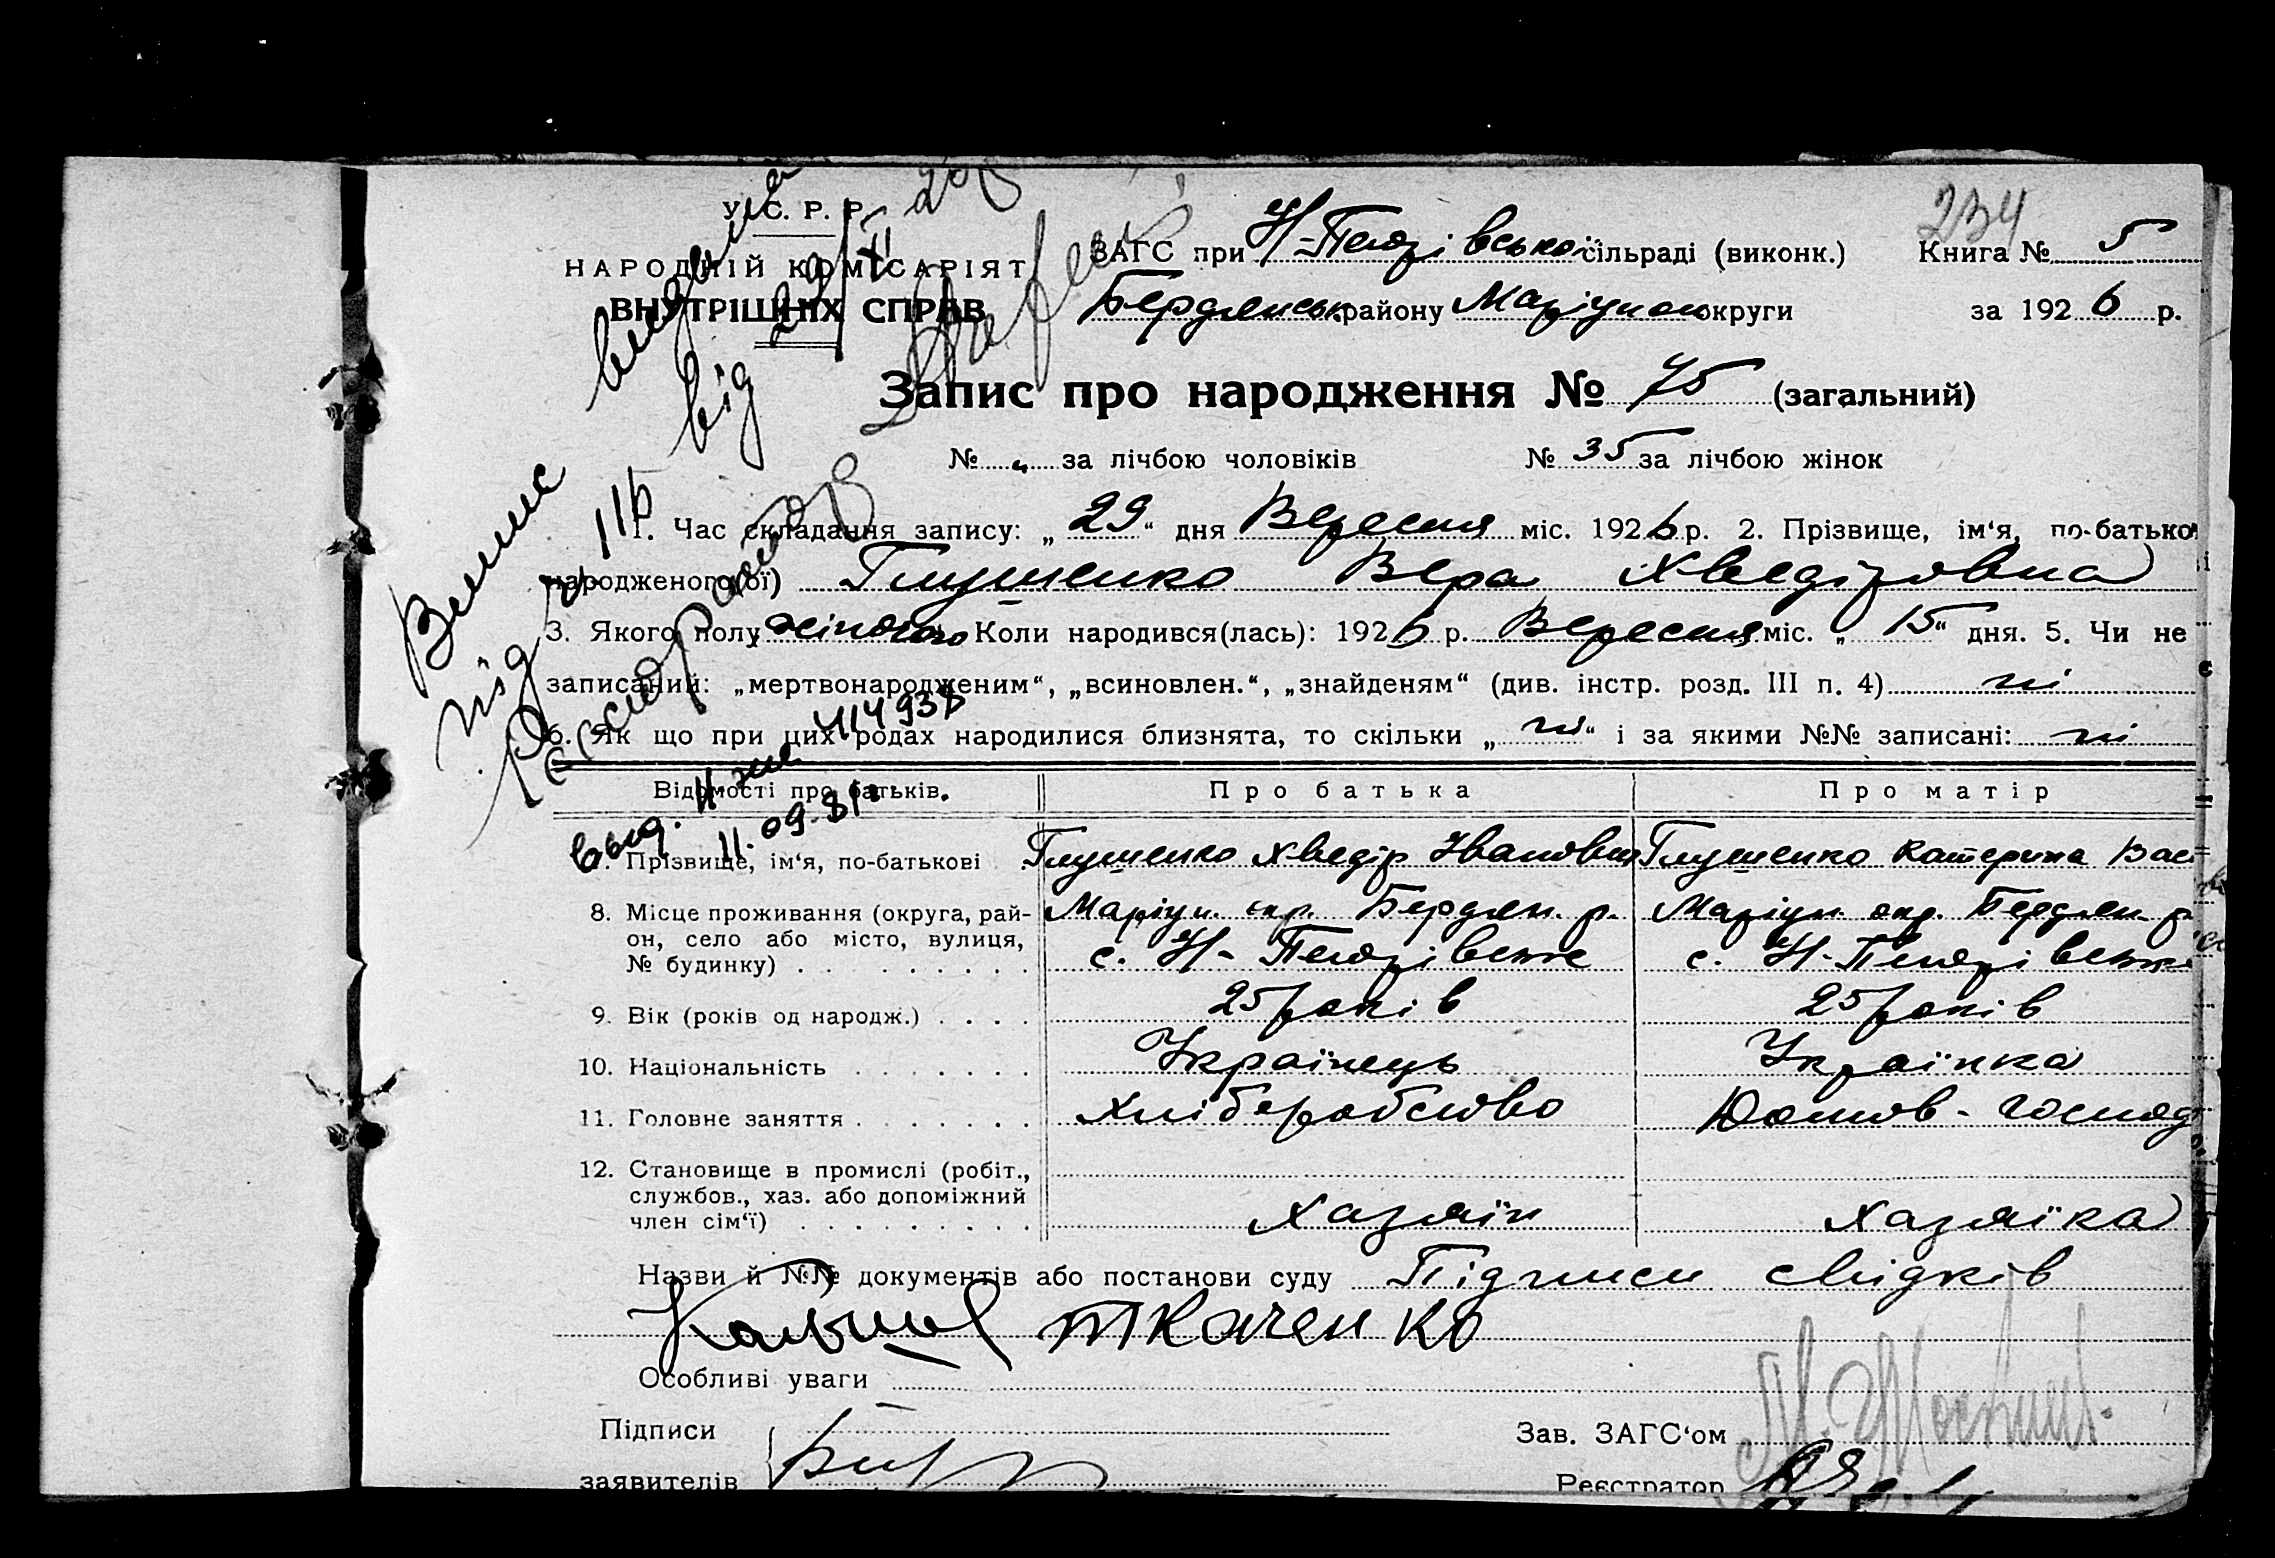 234
У. С. Р. Р.
НАРОДНІЙ КОМІСАРІЯТ
ВНУТРІШНІХ СПРАВ
ЗАГС при сільраді (виконк.) Книга № 5
Бердянськ району Маріупол округи за 1926 р.
Запис про народження № 75 (загальний)
№ „ за лічбою чоловіків № 35 за лічбою жінок
1. Час складання запису: „29“ дня Вересня міс. 1926 р. 2. Прізвище, ім‘я, по-батькові
народженого(ої) Глущенко Вера Хведіровна
3. Якого полу жіночого Коли народився(лась): 1926 р. Вересня міс. „15“ дня. 5. Чи не є
записаний: „мертвонародженим“, „всиновлен.“, „знайденям“ (див. інстр. розд. III п. 4) ні
6. Як що при цих родах народилися близнята, то скільки „ні“ і за якими №№ записані: ні
Відомості про батьків. Про батька Про матір
7. Прізвище, ім‘я, по-батькові Глущенко Хведір Іванович Глущенко Катерина Вас
8. Місце проживання (округа, рай- Маріуп. окр. Бердян. р. Маріуп. окр. Бердян. р.
он, село або місто, вулиця,
№ будинку) с. с.
9. Вік (років од народж.) 25 років 25 років
10. Національність Українець Українка
11. Головне заняття Хліборобство Домов-господ
12. Становище в промислі (робіт.,
службов., хаз. або допоміжний
член сім‘ї) Хазяїн Хазяїка
Назви й №№ документів або постанови суду Підписи свідків
Ткаченко
Особливі уваги
Підписи Зав. ЗАГС‘ом
заявителів Реєстратор
Випис видана
під № 116 від 29/XI
выд. 414938
11.09.81г